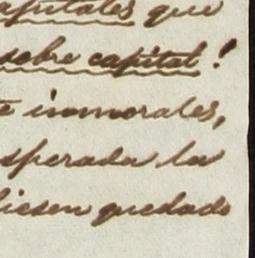 apitales que
sobre capital!
e inmorales,
sperada la
iesen quedado